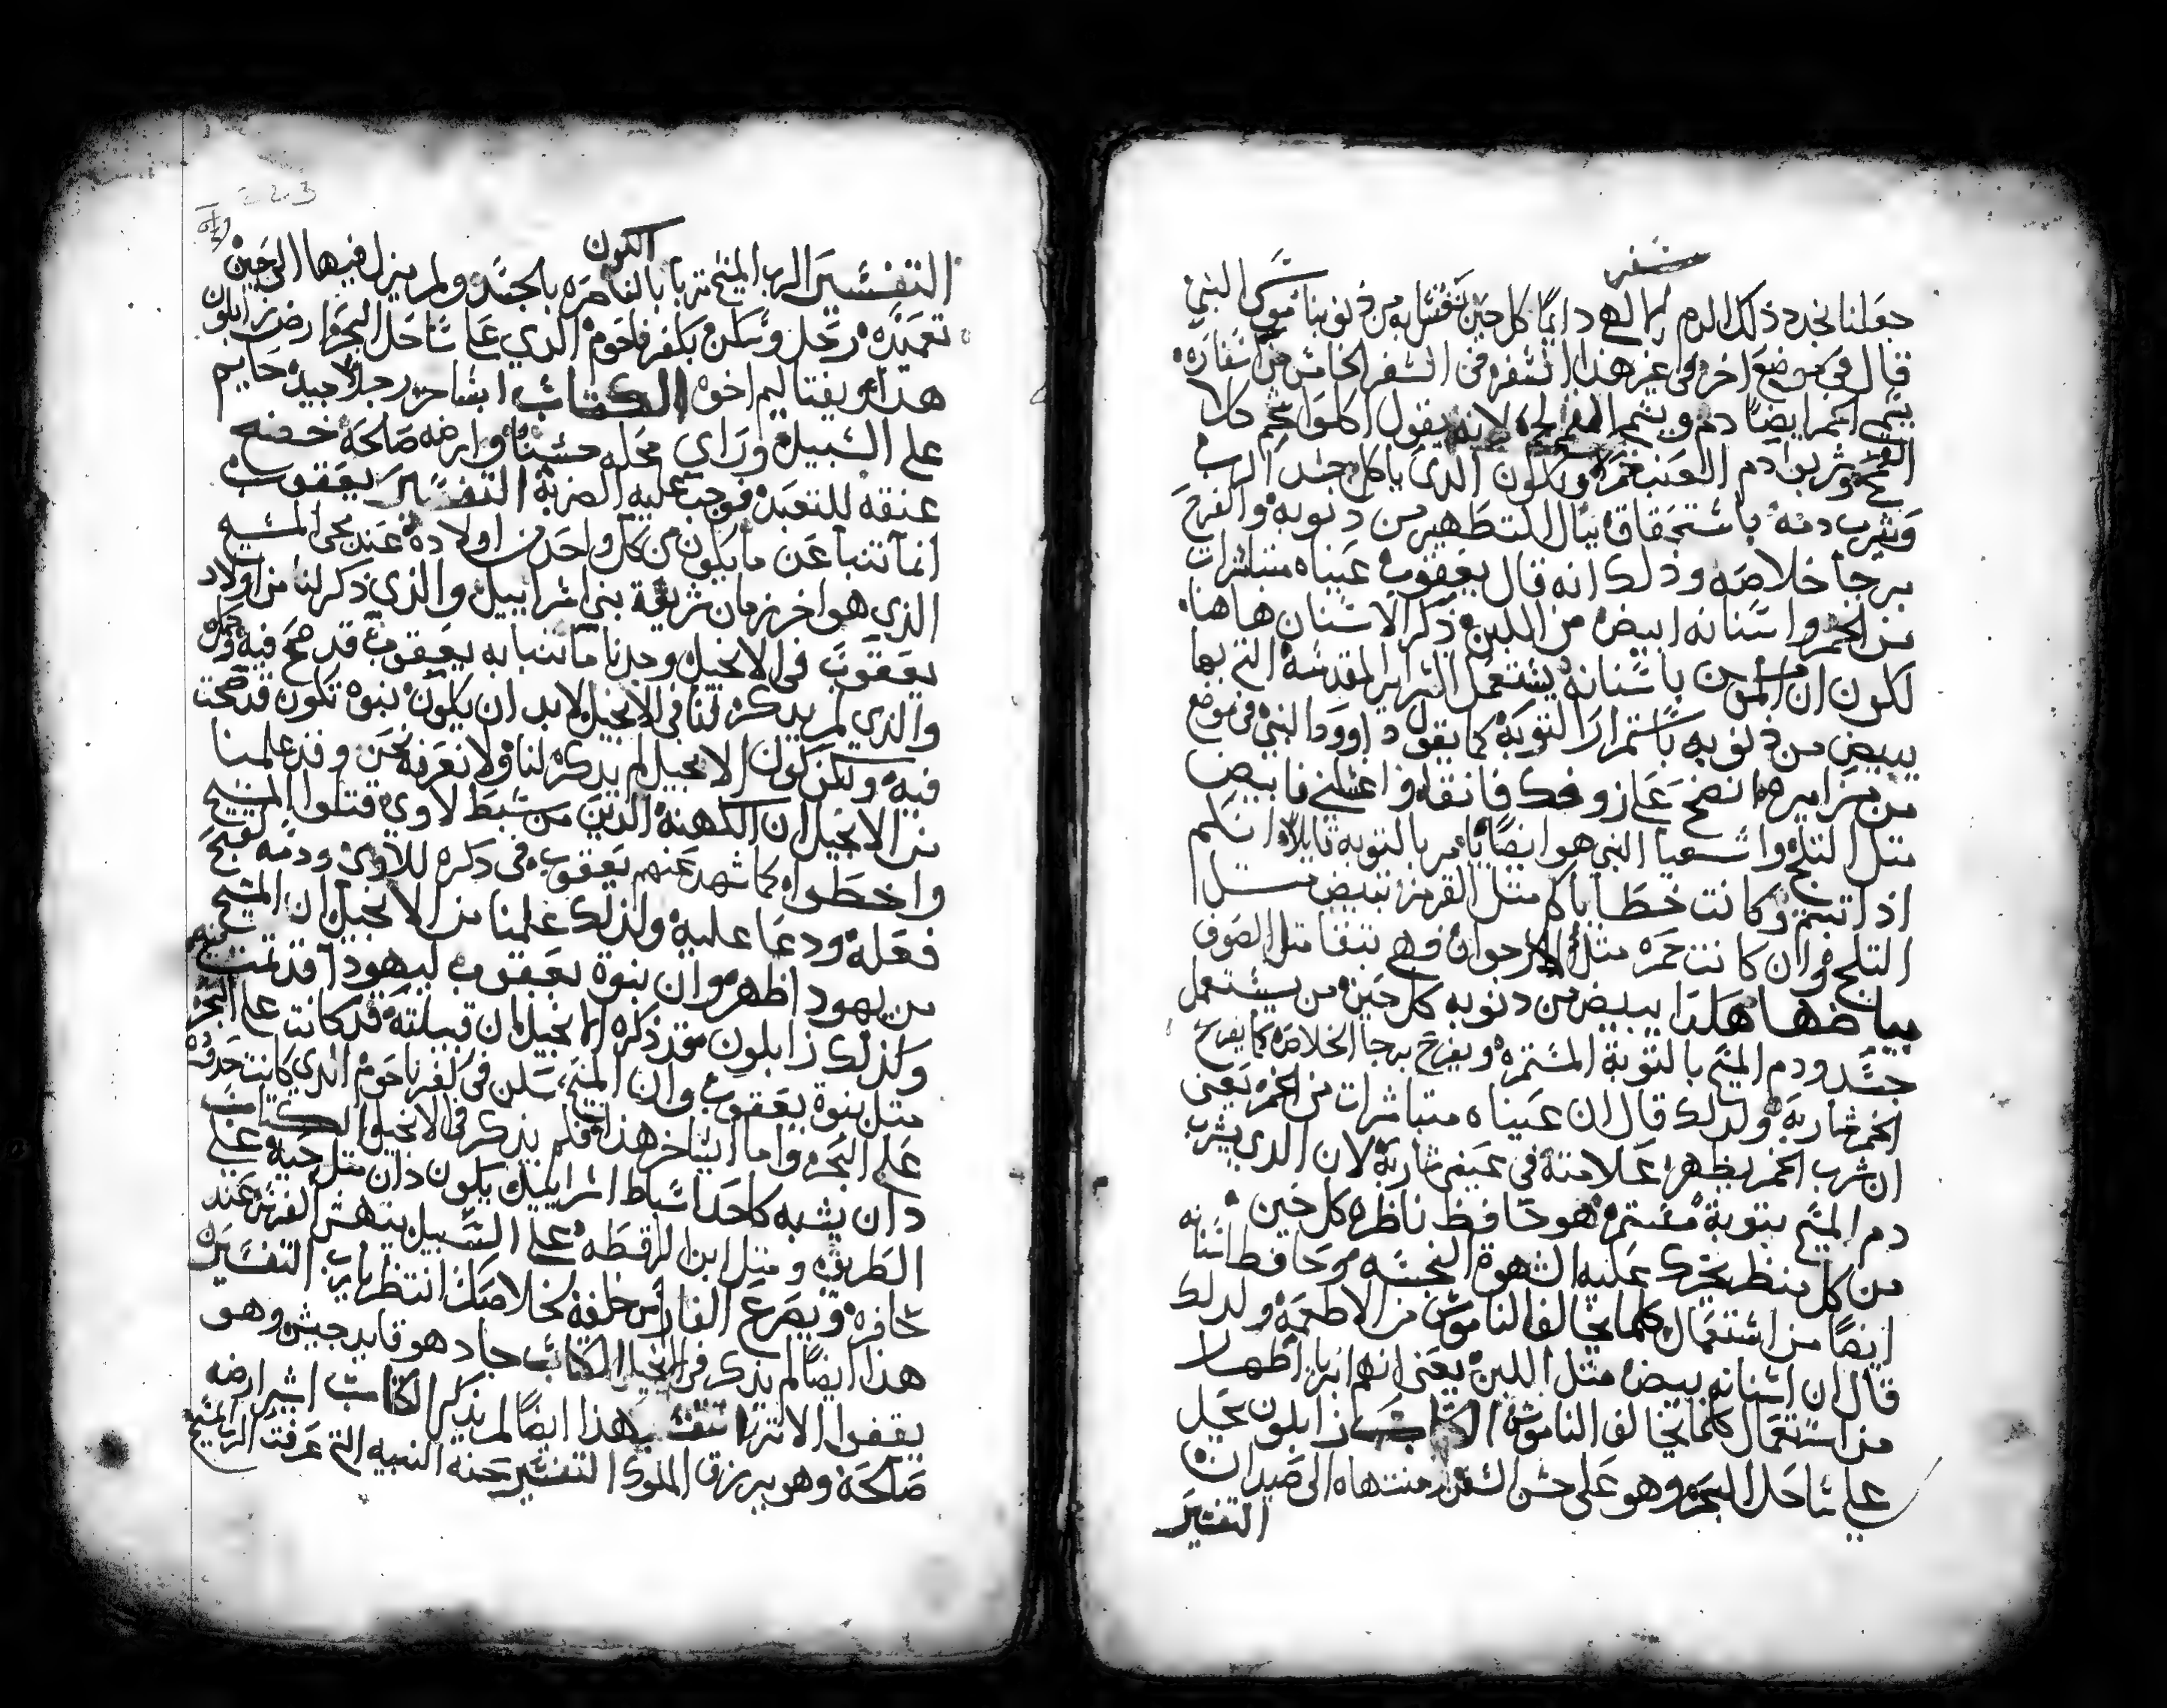 سفر
جعلنا نجدد ذلك الدم الالهي دايمًا كل حين نغتسل به من ذنوبنا موسى النبي
قال في موضع اخر في غير هذا السفر في السفر الخامس من اسفاره
يسمي الخمر ايضًا دم ويسم القمح لحم لانه يقول اكلوا شحم كلا
القمح وشربوا دم العنب خمرًا ويكون الذي ياكل جسد الرب
ويشرب دمه باستحقاق ينال التطهير من ذنوبه والفرح
برجا خلاصه وذلك انه قال يعقوب عيناه متباشرات
من الخمر واسنانه ابيض من اللبن ذكر الاسنان هاهنا
لكون ان المومن باسنانه يستعمل السراير المقدسة التي بها
يبيض من ذنوبه باستمرار التوبة كما يقول داوود النبي في موضع
من مزاميره انضح علي زوفك فانقا واغسلني فابيض
مثل الثلج واشعيا النبي هو ايضًا يامر بالتوبة قايلاً انكم
اذا تبتم وكانت خطاياكم مثل القرمز تبيض مثل
الثلج وان كانت حمره مثل الارجوان فهي تنقا مثل الصوف
بياضها هكذا يبيض من ذنوبه كل حين من يستعمل
جسد ودم المسيح بالتوبة المستمره ويفرح برجا الخلاص كما يفرح
الخمر شاربه ولذلك قال ان عيناه متباشرات من الخمر يعني
ان شرب الخمر يظهر علامته في عيني شاربه لان الذي يشرب
دم المسيح بتوبة مستمره هو حافظ ناظره كل حين
من كل منظر يحرك عليه الشهوة النجسه وحافظ اسنانه
ايضًا من استعمال كلما يخالف الناموس من الاطعمه ولذلك
قال ان اسنانه بيض مثل اللبن يعني انهم ابريا اطهار
من استعمال كلما يخالف الناموس الكتاب زابلون يحل
على ساحل البحر وهو على حسن السفن ومنتهاه الى صيدان
التفسير
الكون
التفسير الرب المسيح تربا بالناصره بالجسد ولم يزل فيها الى حين
تعميده رحل وسكن بكفرناحوم الذي على ساحل البحر ارض زابلون
هذا ونفتاليم اخوه الكتاب ايساخر رجلا جيد حايم
على السبيل وراى محله حسنًا وارضه صالحة خضع
عنقه للتعبد فوجب عليه الضربه التفسير يعقوب
انما تنبا عن ما يكون من كل واحد من اولاده عند مجي المسيح
الذي هو اخر زمان شريعة بني اسراييل والذي ذكر لنا من اولاد
يعقوب في الانجيل وجدنا ما تنبا به يعقوب قد صح فيه وكمل
والذي لم يذكر لنا في الانجيل لابد ان يكون نبوه تكون قد صحت
فيه ولكن كون الانجيل لم يذكره لنا ولا نعرفه نحن وقد علمنا
من الانجيل ان الكهنة الذين من سبط لاوي قتلوا المسيح
واخطوا كما شهد عنهم يعقوب في ذكره للاوي وذمه لقبح
فعله ودعا عليه ولذلك علمنا من الانجيل ان المسيح
من يهودا ظهر وان نبوة يعقوب ليهودا قد تمت فيهم
وكذلك زابلون فقد ذكره الانجيل ان قبيلته قد كانت على البحر
مثل نبوة يعقوب وان المسيح سكن في كفرناحوم الذي كانت حدوده
على البحر واما ايساخر هذا فلم يذكر في الانجيل الكتاب
دان يشبه كاحد اسباط اسراييل يكون دان مثل حية على
الطريق ومثل ابن الرقطه على السبيل ينهش الفرس عند
حافره ويصرع الفارس من خلفه لخلاصك انتظر يارب التفسير
هذا ايضًا لم يذكر في الانجيل الكتاب جاد هو قايد جيش وهو
يقفوا الاثر التفسير هذا ايضًا لم يذكر الكتاب اشير ارضه
صالحة وهو يرزق الملوك التفسير حنه النبيه التي عرفت الرب المسيح